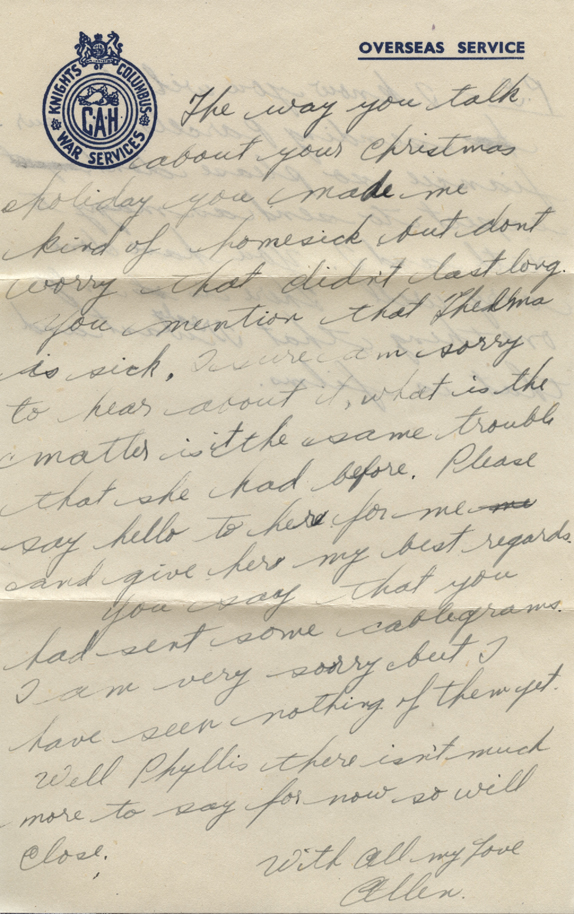 OVERSEAS SERVICE
KNIGHTS OF COLUMBUS
CAH
WAR SERVICES
The way you talk
about your Christmas
holiday you made me
kind of homesick but dont
worry that didn't last long.
You mention that Thelma
is sick, I sure am sorry
to hear about it, what is the
matter is it the same trouble
that she had before. Please
say hello to here for me me
and give her my best regards.
You say that you
had sent some cablegrams.
I am very sorry but I
have seen nothing of them yet.
Well Phyllis there isn't much
more to say for now so will
close.
With all my love
Allen.